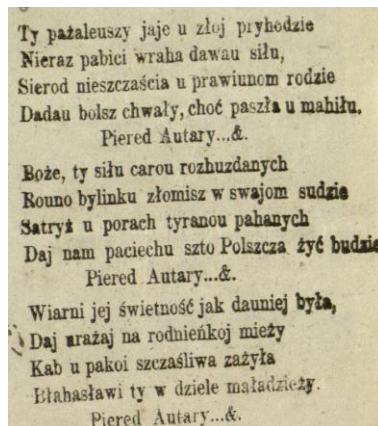 Ty pażaleuszy jaje u złoj pryhodzie
Nieraz pabici wraha dawau siłu,
Sierod nieszczaścia u prawiunom rodzie
Dadau bolsz chwały, choć paszła u mahiłu.
Piered Autary...&.
Boże, ty siłu carou rozhuzdanych
Rouno bylinku złomisz w swajom sudzie
Satryż u porach tyranou pahanych
Daj nam paciechu szto Polszcza żyć budzie
Piered Autary...&.
Wiarni jej świetność jak dauniej była,
Daj urażaj na rodnieńkoj mieży
Kab u pakoi szczaśliwa zażyła
Błahasławi ty w dziele maładzieży.
Piered Autary...&.